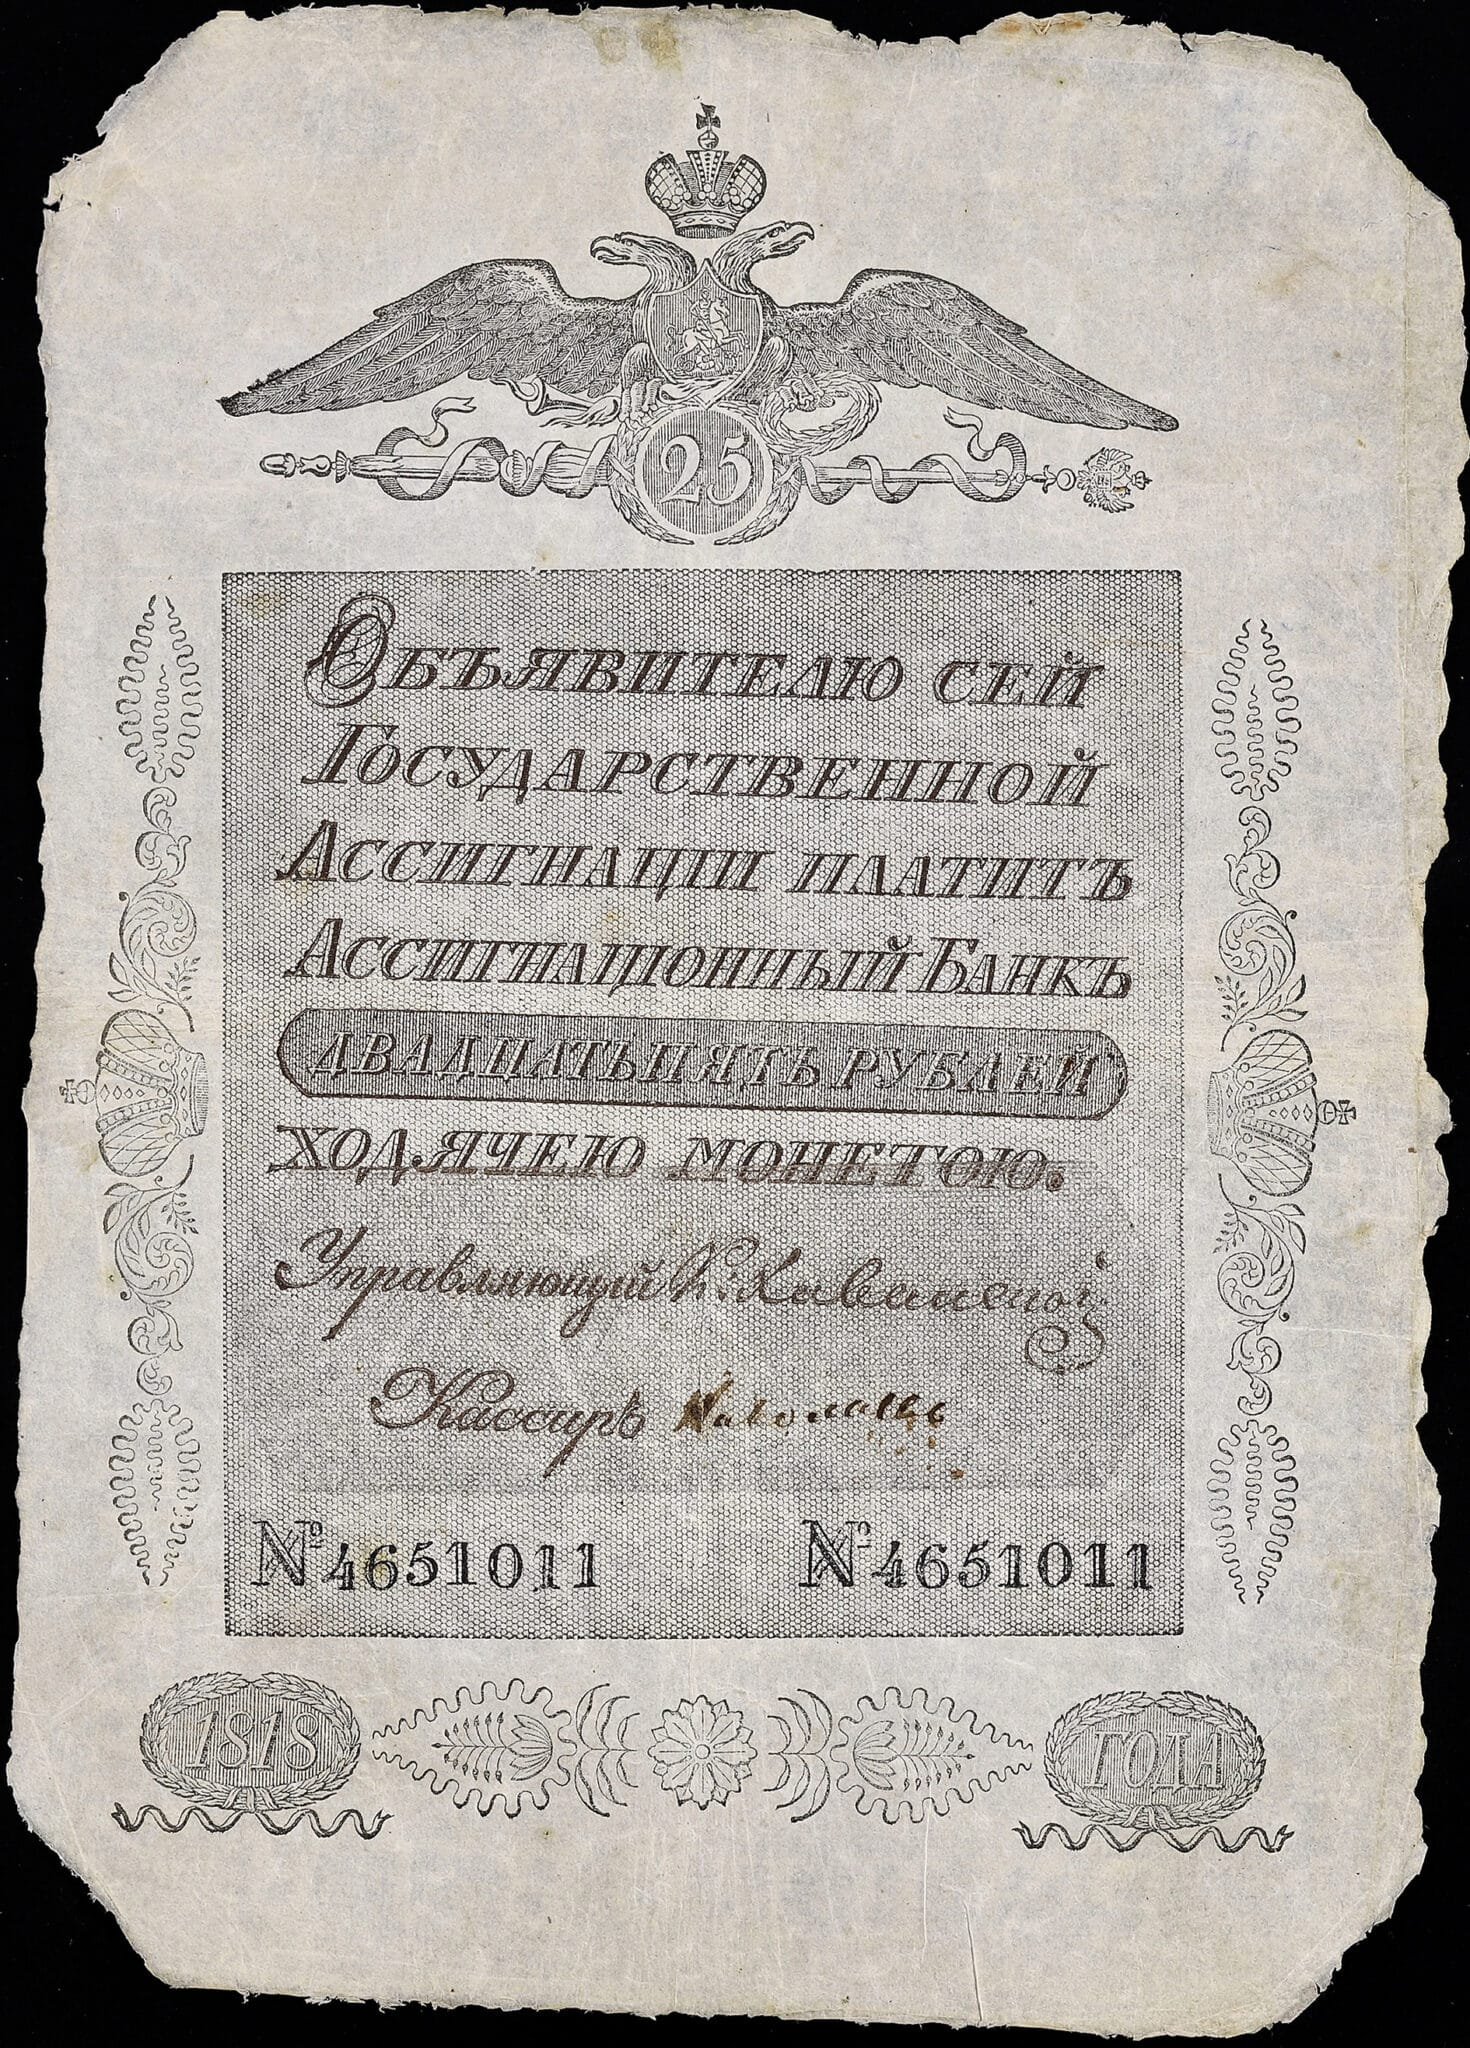 25
Объявителю сей
Государственной
Ассигнаціи платитъ
Ассигнаціонный Банкъ
двадцать пять рублей
ходячею монетою.
Управляющий
Кассиръ
№ 4651011 № 4651011
1818 года